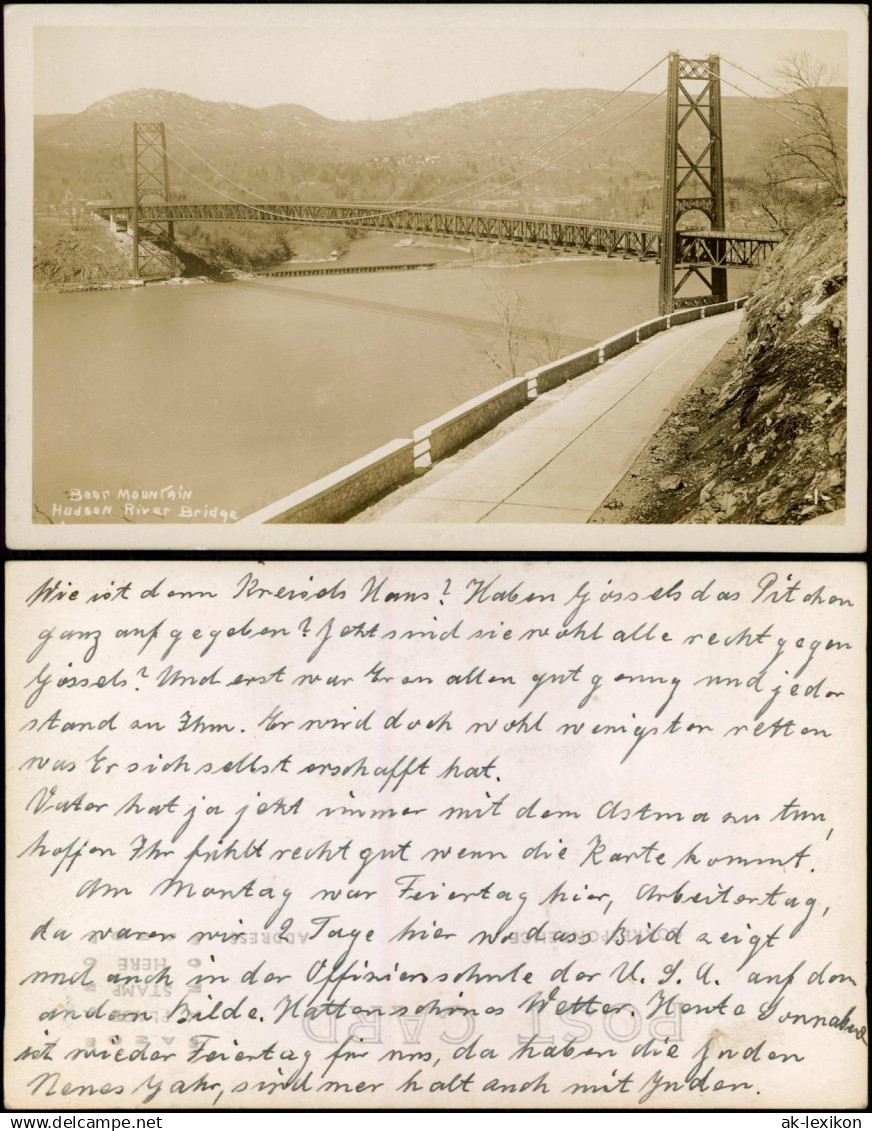 Bear Mountain
Hudson River Bridge
Wie ist denn Kreisels Hans? Haben Gössels das Pitchen
ganz aufgegeben? Jetzt sind sie wohl alle recht gegen
Gössels? Und erst war Er an allen gut genug und jeder
stand zu Ihm. Er wird doch wohl wenigsten retten
was Er sich selbst erschafft hat.
Vater hat ja jetzt immer mit dem Astma zu tun,
hoffen Ihr fühlt recht gut wenn die Karte kommt.
Am Montag war Feiertag hier, Arbeitertag,
da waren wir 2 Tage hier wo dass Bild zeigt
und auch in der Offizierschule der U. S. A. auf dem
andern Bilde. Hatten schönes Wetter. Heute Sonnabend
ist wieder Feiertag für uns, da haben die Juden
Neues Jahr, sind mer halt auch mit Juden.
CORRESPONDENCE
ADDRESS
POST CARD
STAMP
HERE
ak-lexikon